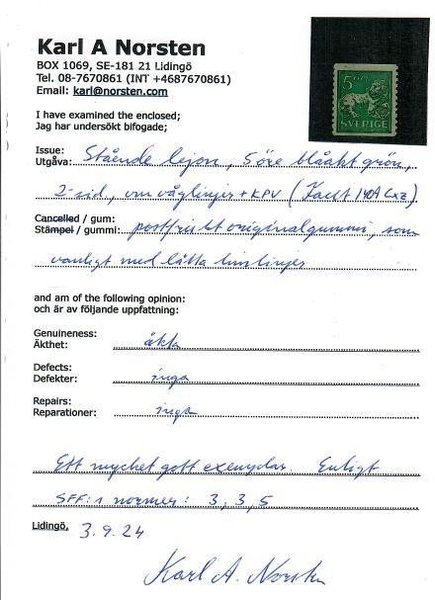 Karl A Norsten
BOX 1069, SE-181 21 Lidingö
Tel. 08-7670861 (INT +4687670861)
Email: karl@norsten.com
5 ÖRE
SVERIGE
I have examined the enclosed;
Jag har undersökt bifogade;
Issue:
Utgåva: Stående lejon, 5 öre blåakt grön,
2-sid, vm våglinjer + KPV (Facit 140A Cxz)
Cancelled / gum:
Stämpel / gummi: postfriskt originalgummi, som
vanligt med lätta limlinjer
and am of the following opinion:
och är av följande uppfattning:
Genuineness:
Äkthet: äkta
Defects:
Defekter: inga
Repairs:
Reparationer: inga
Ett mycket gott exemplar. Enligt
SFF:s normer: 3, 3, 5
Lidingö, 3.9.24
Karl A. Norsten